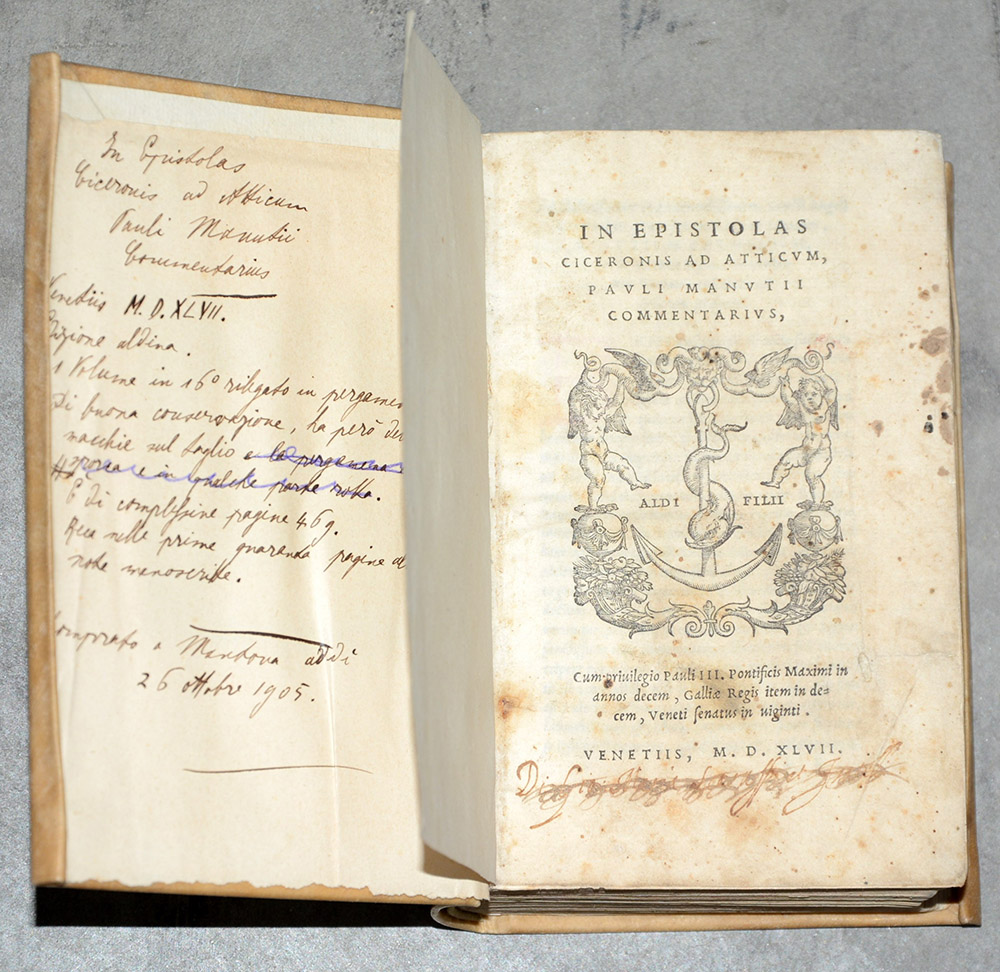 In Epistolas
Ciceronis ad Atticum
Pauli Manutii
Commentarius
Venetiis M.D.XLVII.
Edizione aldina.
1 Volume in 16° rilegato in pergamen
Di buona conservazione, ha però de
macchie sul taglio e la pergamena
e in qualche parte rotta.
E di complessive pagine 469.
Reca nelle prime quaranta pagine
note manoscritte.
Comprato a Mantova addì
26 ottobre 1905.
IN EPISTOLAS
CICERONIS AD ATTICVM,
PAVLI MANVTII
COMMENTARIVS,
ALDI FILII
Cum priuilegio Pauli III. Pontificis Maximi in
annos decem, Galliæ Regis item in de-
cem, Veneti ſenatus in uiginti.
VENETIIS, M. D. XLVII.